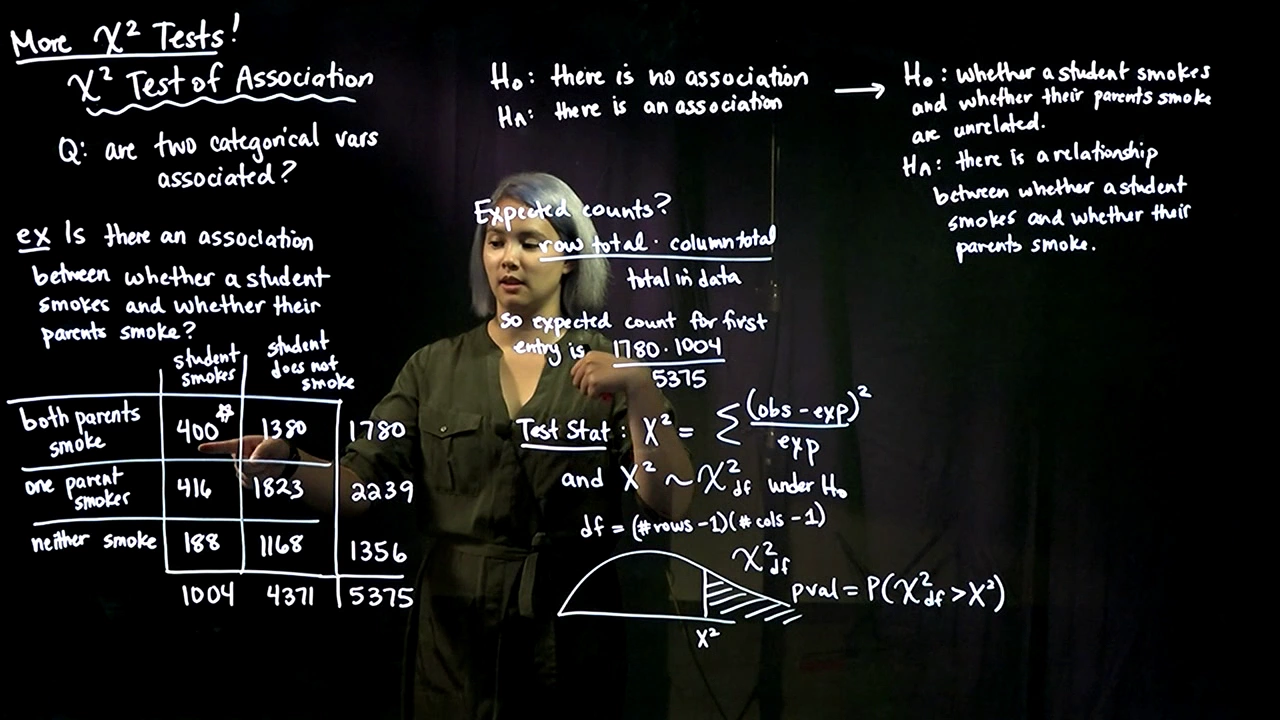 More χ² Tests!
χ² Test of Association
Q: are two categorical vars
associated?
ex Is there an association
between whether a student
smokes and whether their
parents smoke?
student smokes
student does not smoke
both parents smoke 400* 1380 1780
one parent smokes 416 1823 2239
neither smoke 188 1168 1356
1004 4371 5375
H₀: there is no association
Hₐ: there is an association
→
H₀: whether a student smokes
and whether their parents smoke
are unrelated.
Hₐ: there is a relationship
between whether a student
smokes and whether their
parents smoke.
Expected counts?
row total · column total
total in data
so expected count for first
entry is 1780 · 1004
5375
Test Stat: X² = Σ (obs - exp)²
exp
and X² ~ χ²df under H₀
df = (#rows -1)(# cols -1)
χ²df
pval = P(χ²df > X²)
X²